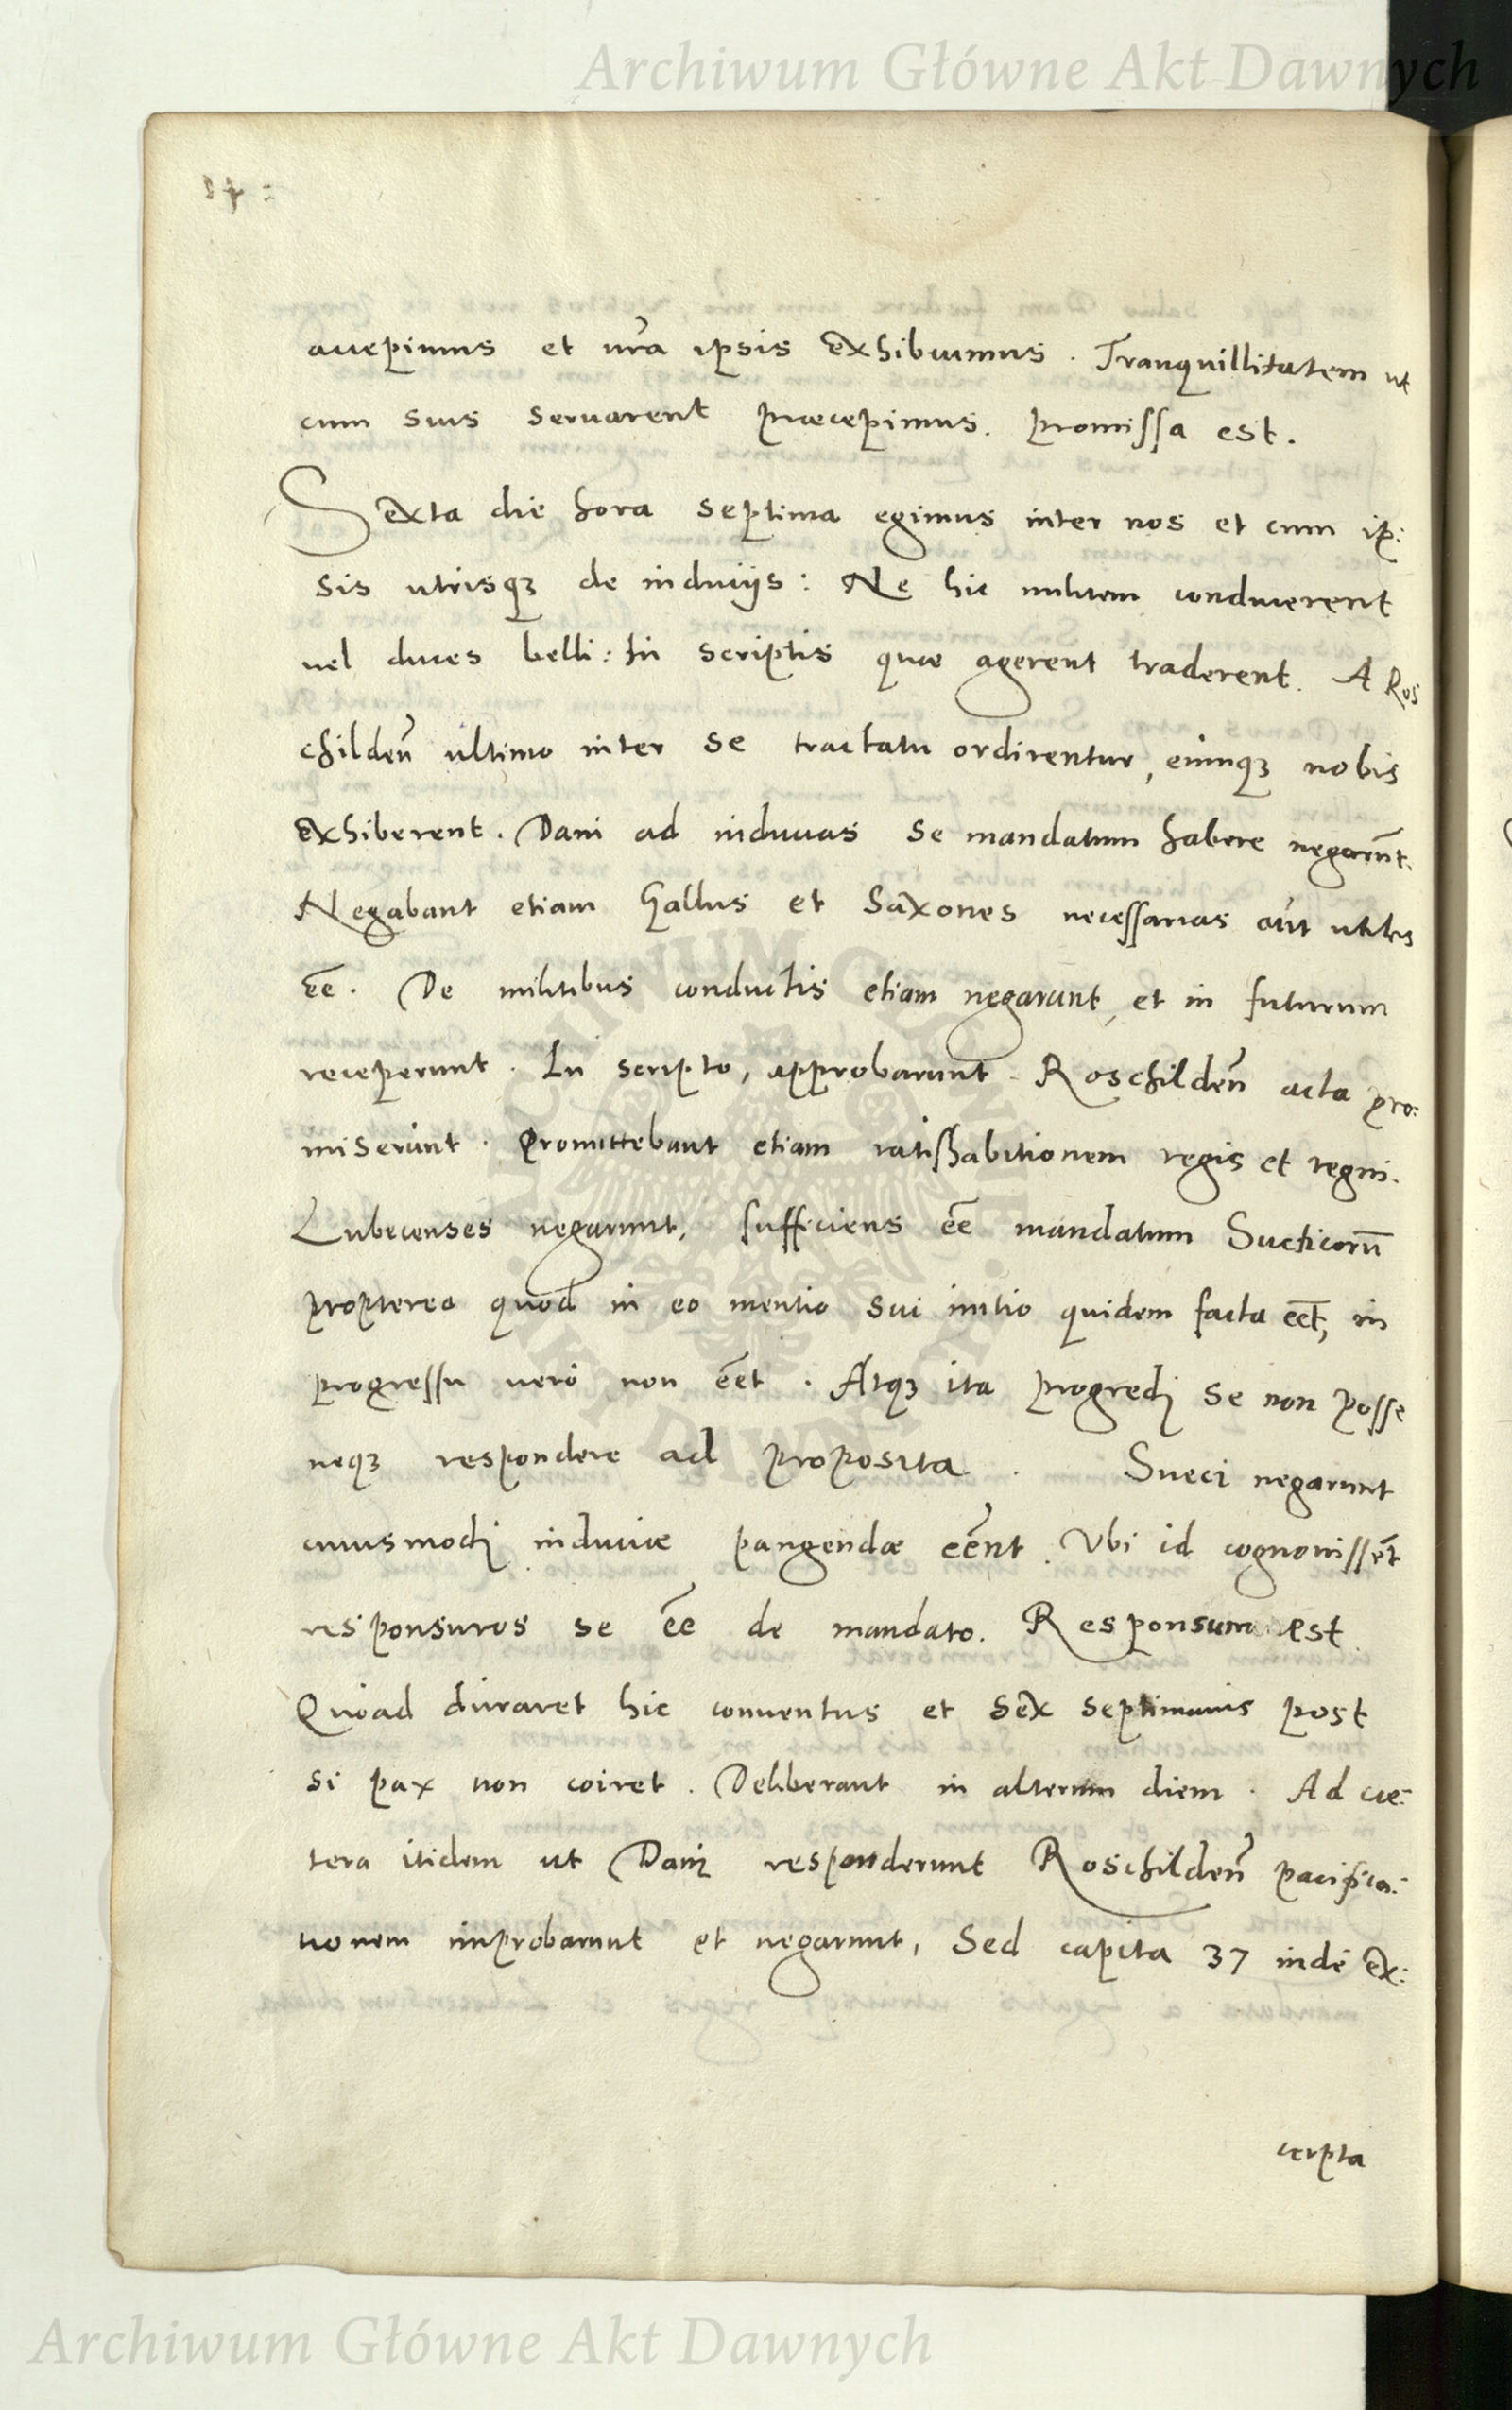 Archiwum Główne Akt Dawnych
accepimus et nr̃a ipsis exhibuimus. Tranquillitatem ut
cum suis servarent præcepimus. promissa est.
Sexta die hora septima egimus inter nos et cum ip:
sis utrisqꝫ de inducijs: Ne hic militem conducerent
vel duces belli: In scriptis quæ agerent traderent. A Ros
childen̄ ultimo inter se tractatu ordirentur, eumqꝫ nobis
exhiberent. Dani ad inducias se mandatum habere negarūt.
Negabant etiam Gallus et Saxones necessarias aut utiles
ēē. De militibus conductis etiam negarunt, et in futurum
receperunt. In scripto, approbarunt. Roschilden̄ acta pro:
miserunt. Promittebant etiam ratihabitionem regis et regni.
Lubecenses negarunt, sufficiens ēē mandatum Suecicorū
propterea quod in eo mentio sui initio quidem facta ēēt, in
progressu vero non ēēt. Atqꝫ ita progredi se non posse
neqꝫ respondere ad proposita. Sueci negarunt
cuiusmodi induciæ pangendæ ēēnt. Vbi id cognovissēt
responsuros se ēē de mandato. Responsum est
Quoad duraret hic conventus et sex septimanis post
si pax non coiret. Deliberant in alterum diem. Ad cæ:
tera itidem ut Dani responderunt Roschilden̄ pacifica:
tionem improbarunt et negarunt, Sed capita 37 inde ex:
cerpta
Archiwum Główne Akt Dawnych